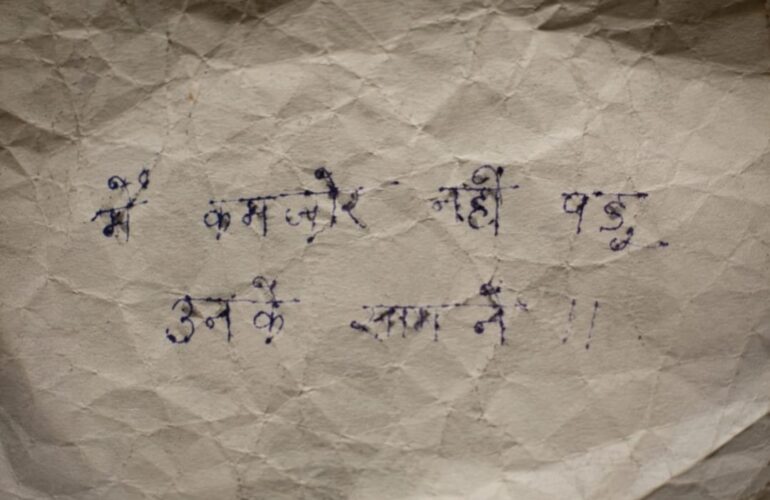 मैं कमजोर नही पडु
उनके सामने ॥